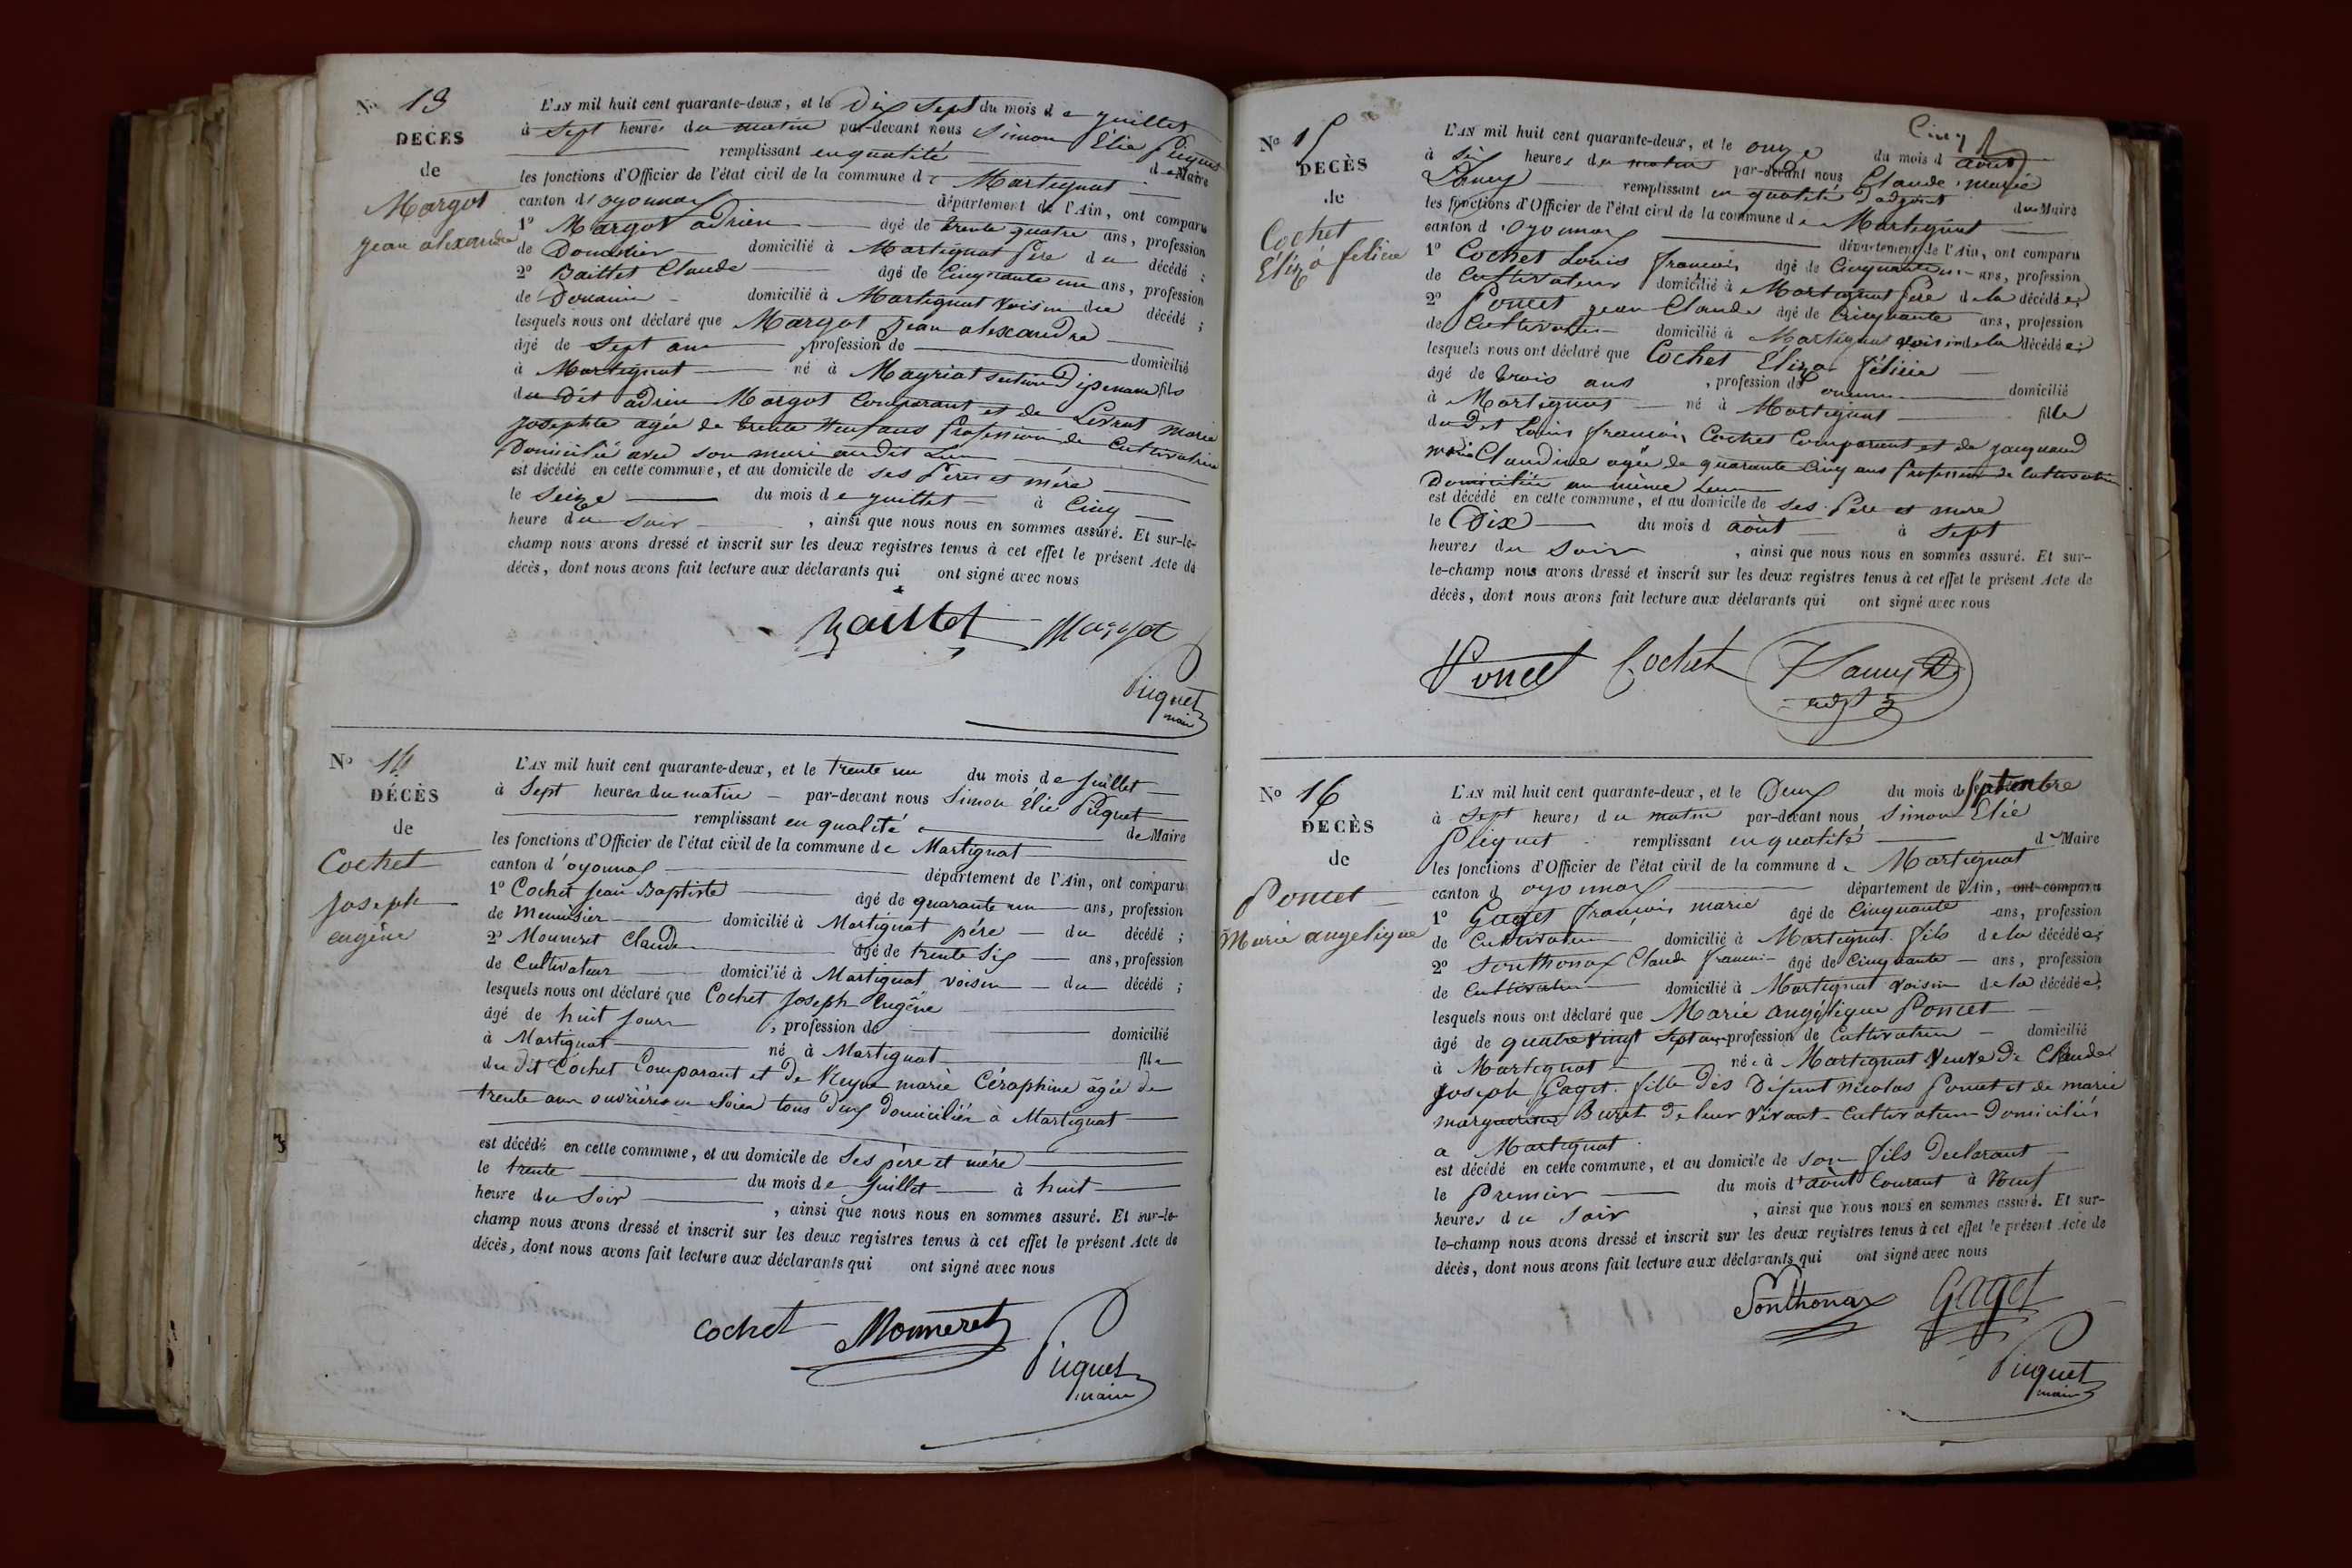 N° 13
DECES
de
Margot
jean alexandre
L'AN mil huit cent quarante-deux, et le Dix Sept du mois de juillet
à Sept heures du matin par-devant nous Simon Élie Piquet
remplissant en qualité de Maire
les fonctions d'Officier de l'état civil de la commune de Martignat
canton d'oyonnax département de l'Ain, ont comparu
1° Margot adrien âgé de trente quatre ans, profession
de Douanier domicilié à Martignat Père du décédé ;
2° Baillet Claude âgé de Cinquante un ans, profession
de Douanier domicilié à Martignat Voisin du décédé ;
lesquels nous ont déclaré que Margot Jean alexandre
âgé de Sept ans profession de domicilié
à Martignat né à Mayriat section fils
du dit adrien Margot Comparant et de Livrat marie
josephte agée de trente Neuf ans Profession de Cultivatrice
Domicilié avec son mari audit Lieu
est décédé en cette commune, et au domicile de ses Père et mère
le Seize du mois de juillet à Cinq
heure du Soir , ainsi que nous nous en sommes assuré. Et sur-le-
champ nous avons dressé et inscrit sur les deux registres tenus à cet effet le présent Acte de
décès, dont nous avons fait lecture aux déclarants qui ont signé avec nous
Baillet Margot
Piquet
maire
N° 14
DÉCÈS
de
Cochet
Joseph
eugène
L'AN mil huit cent quarante-deux, et le trente un du mois de Juillet
à Sept heures du matin par-devant nous Simon Élie Piquet
remplissant en qualité de Maire
les fonctions d'Officier de l'état civil de la commune de Martignat
canton d'oyonnax département de l'Ain, ont comparu
1° Cochet Jean Baptiste âgé de quarante un ans, profession
de Menuisier domicilié à Martignat père du décédé ;
2° Monneret Claude âgé de trente Six ans, profession
de Cultivateur domicilié à Martignat voisin du décédé ;
lesquels nous ont déclaré que Cochet Joseph Eugène
âgé de huit Jours , profession de domicilié
à Martignat né à Martignat fils
du dit Cochet Comparant et de Reyne marie Céraphine âgée de
trente ans ouvrière en Soier tous deux domiciliés à Martignat
est décédé en cette commune, et au domicile de Ses père et mère
le trente du mois de Juillet à huit
heure du Soir , ainsi que nous nous en sommes assuré. Et sur-le-
champ nous avons dressé et inscrit sur les deux registres tenus à cet effet le présent Acte de
décès, dont nous avons fait lecture aux déclarants qui ont signé avec nous
Cochet Monneret
Piquet
maire
Cinq
N° 15
DECÈS
de
Cochet
Éliza félicie
L'AN mil huit cent quarante-deux, et le onze du mois d août
à Six heures du matin par-devant nous Claude marie
remplissant en qualité d'adjoint du Maire
les fonctions d'Officier de l'état civil de la commune de Martignat
canton d'oyonnax département de l'Ain, ont comparu
1° Cochet Louis françois âgé de Cinquante un ans, profession
de Cultivateur domicilié à Martignat Père de la décédée ;
2° Poncet jean Claude âgé de Cinquante ans, profession
de Cultivateur domicilié à Martignat voisin de la décédée ;
lesquels nous ont déclaré que Cochet Éliza félicie
âgé de trois ans , profession de domicilié
à Martignat né à Martignat fille
du dit Louis françois Cochet Comparant et de jacquand
marie Claudine agée de quarante Cinq ans Profession de Cultivatrice
Domiciliée au même Lieu
est décédé en cette commune, et au domicile de ses Père et mère
le Dix du mois d août à Sept
heures du Soir , ainsi que nous nous en sommes assuré. Et sur-
le-champ nous avons dressé et inscrit sur les deux registres tenus à cet effet le présent Acte de
décès, dont nous avons fait lecture aux déclarants qui ont signé avec nous
Poncet Cochet
adjt
N° 16
DECÈS
de
Poncet
Marie angelique
L'AN mil huit cent quarante-deux, et le Deux du mois de Septembre
à Sept heures du matin par-devant nous Simon Élie
Piquet remplissant en qualité de Maire
les fonctions d'Officier de l'état civil de la commune de Martignat
canton d oyonnax département de l'Ain, ont comparu
1° Gaget françois marie âgé de Cinquante ans, profession
de Cultivateur domicilié à Martignat fils de la décédée ;
2° Sonthonax Claude françois âgé de Cinquante ans, profession
de Cultivateur domicilié à Martignat voisin de la décédée ;
lesquels nous ont déclaré que Marie angélique Poncet
âgé de quatre vingt Sept ans profession de Cultivatrice domicilié
à Martignat née à Martignat Veuve de Claude
Joseph Gaget fille des Défunt nicolas Poncet et de marie
marguerite Buret de leur Vivant Cultivateurs Domiciliés
a Martignat
est décédé en cette commune, et au domicile de son fils Déclarant
le Premier du mois d'août Courant à Neuf
heures du Soir , ainsi que nous nous en sommes assuré. Et sur-
le-champ nous avons dressé et inscrit sur les deux registres tenus à cet effet le présent Acte de
décès, dont nous avons fait lecture aux déclarants qui ont signé avec nous
Sonthonax Gaget
Piquet
maire